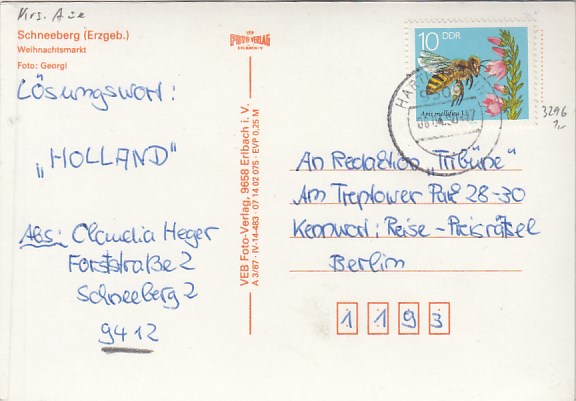 Krs. Aue
Schneeberg (Erzgeb.)
Weihnachtsmarkt
Foto: Georgi
Lösungswort:
"HOLLAND"
Abs: Claudia Heger
Forststraße 2
Schneeberg 2
9412
VEB Foto-Verlag, 9658 Erlbach i. V.
A 3/87 · IV-14-483 · 07 14 02 075 · EVP 0,25 M
10 DDR
Apis mellifera L.
3296
1,-
An Redaktion „Tribüne"
Am Treptower Park 28-30
Kennwort: Reise-Preisrätsel
Berlin
1 1 9 3